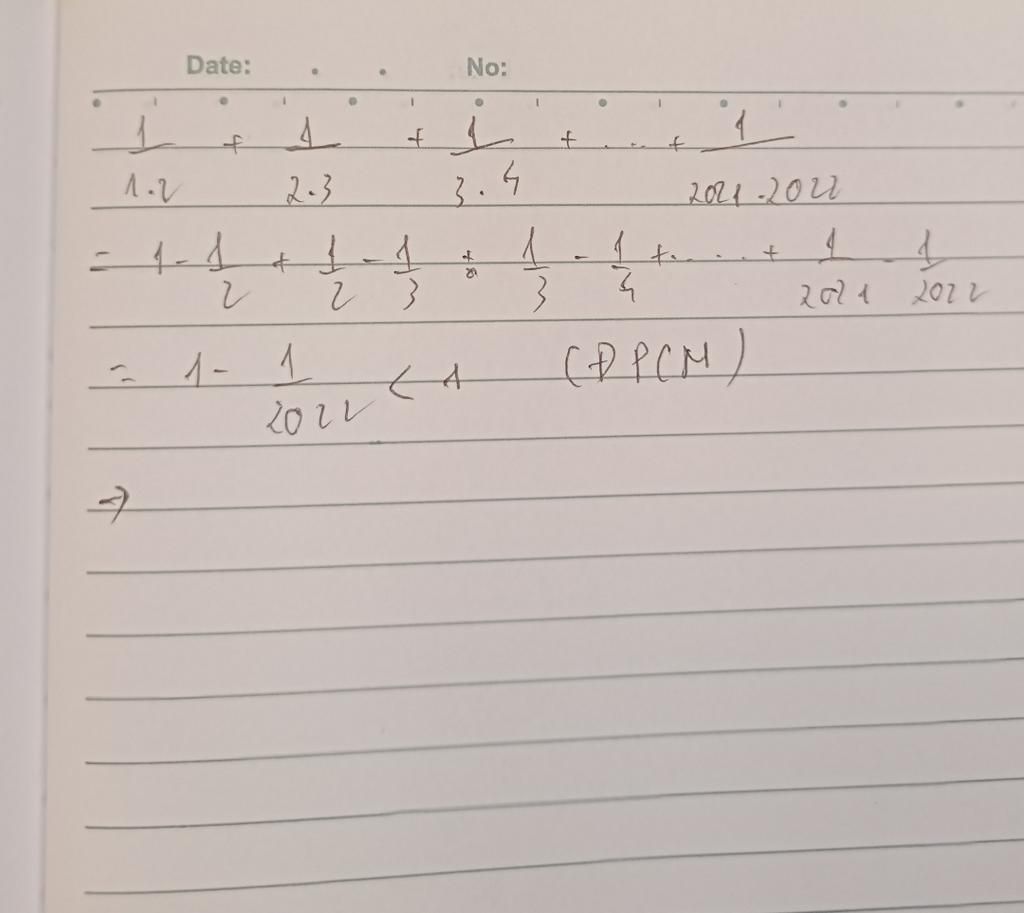 Date: . . No:
1/1.2 + 1/2.3 + 1/3.4 + ... + 1/2021.2022
= 1 - 1/2 + 1/2 - 1/3 + 1/3 - 1/4 + ..... + 1/2021 - 1/2022
= 1 - 1/2022 < 1 (ĐPCM)
→